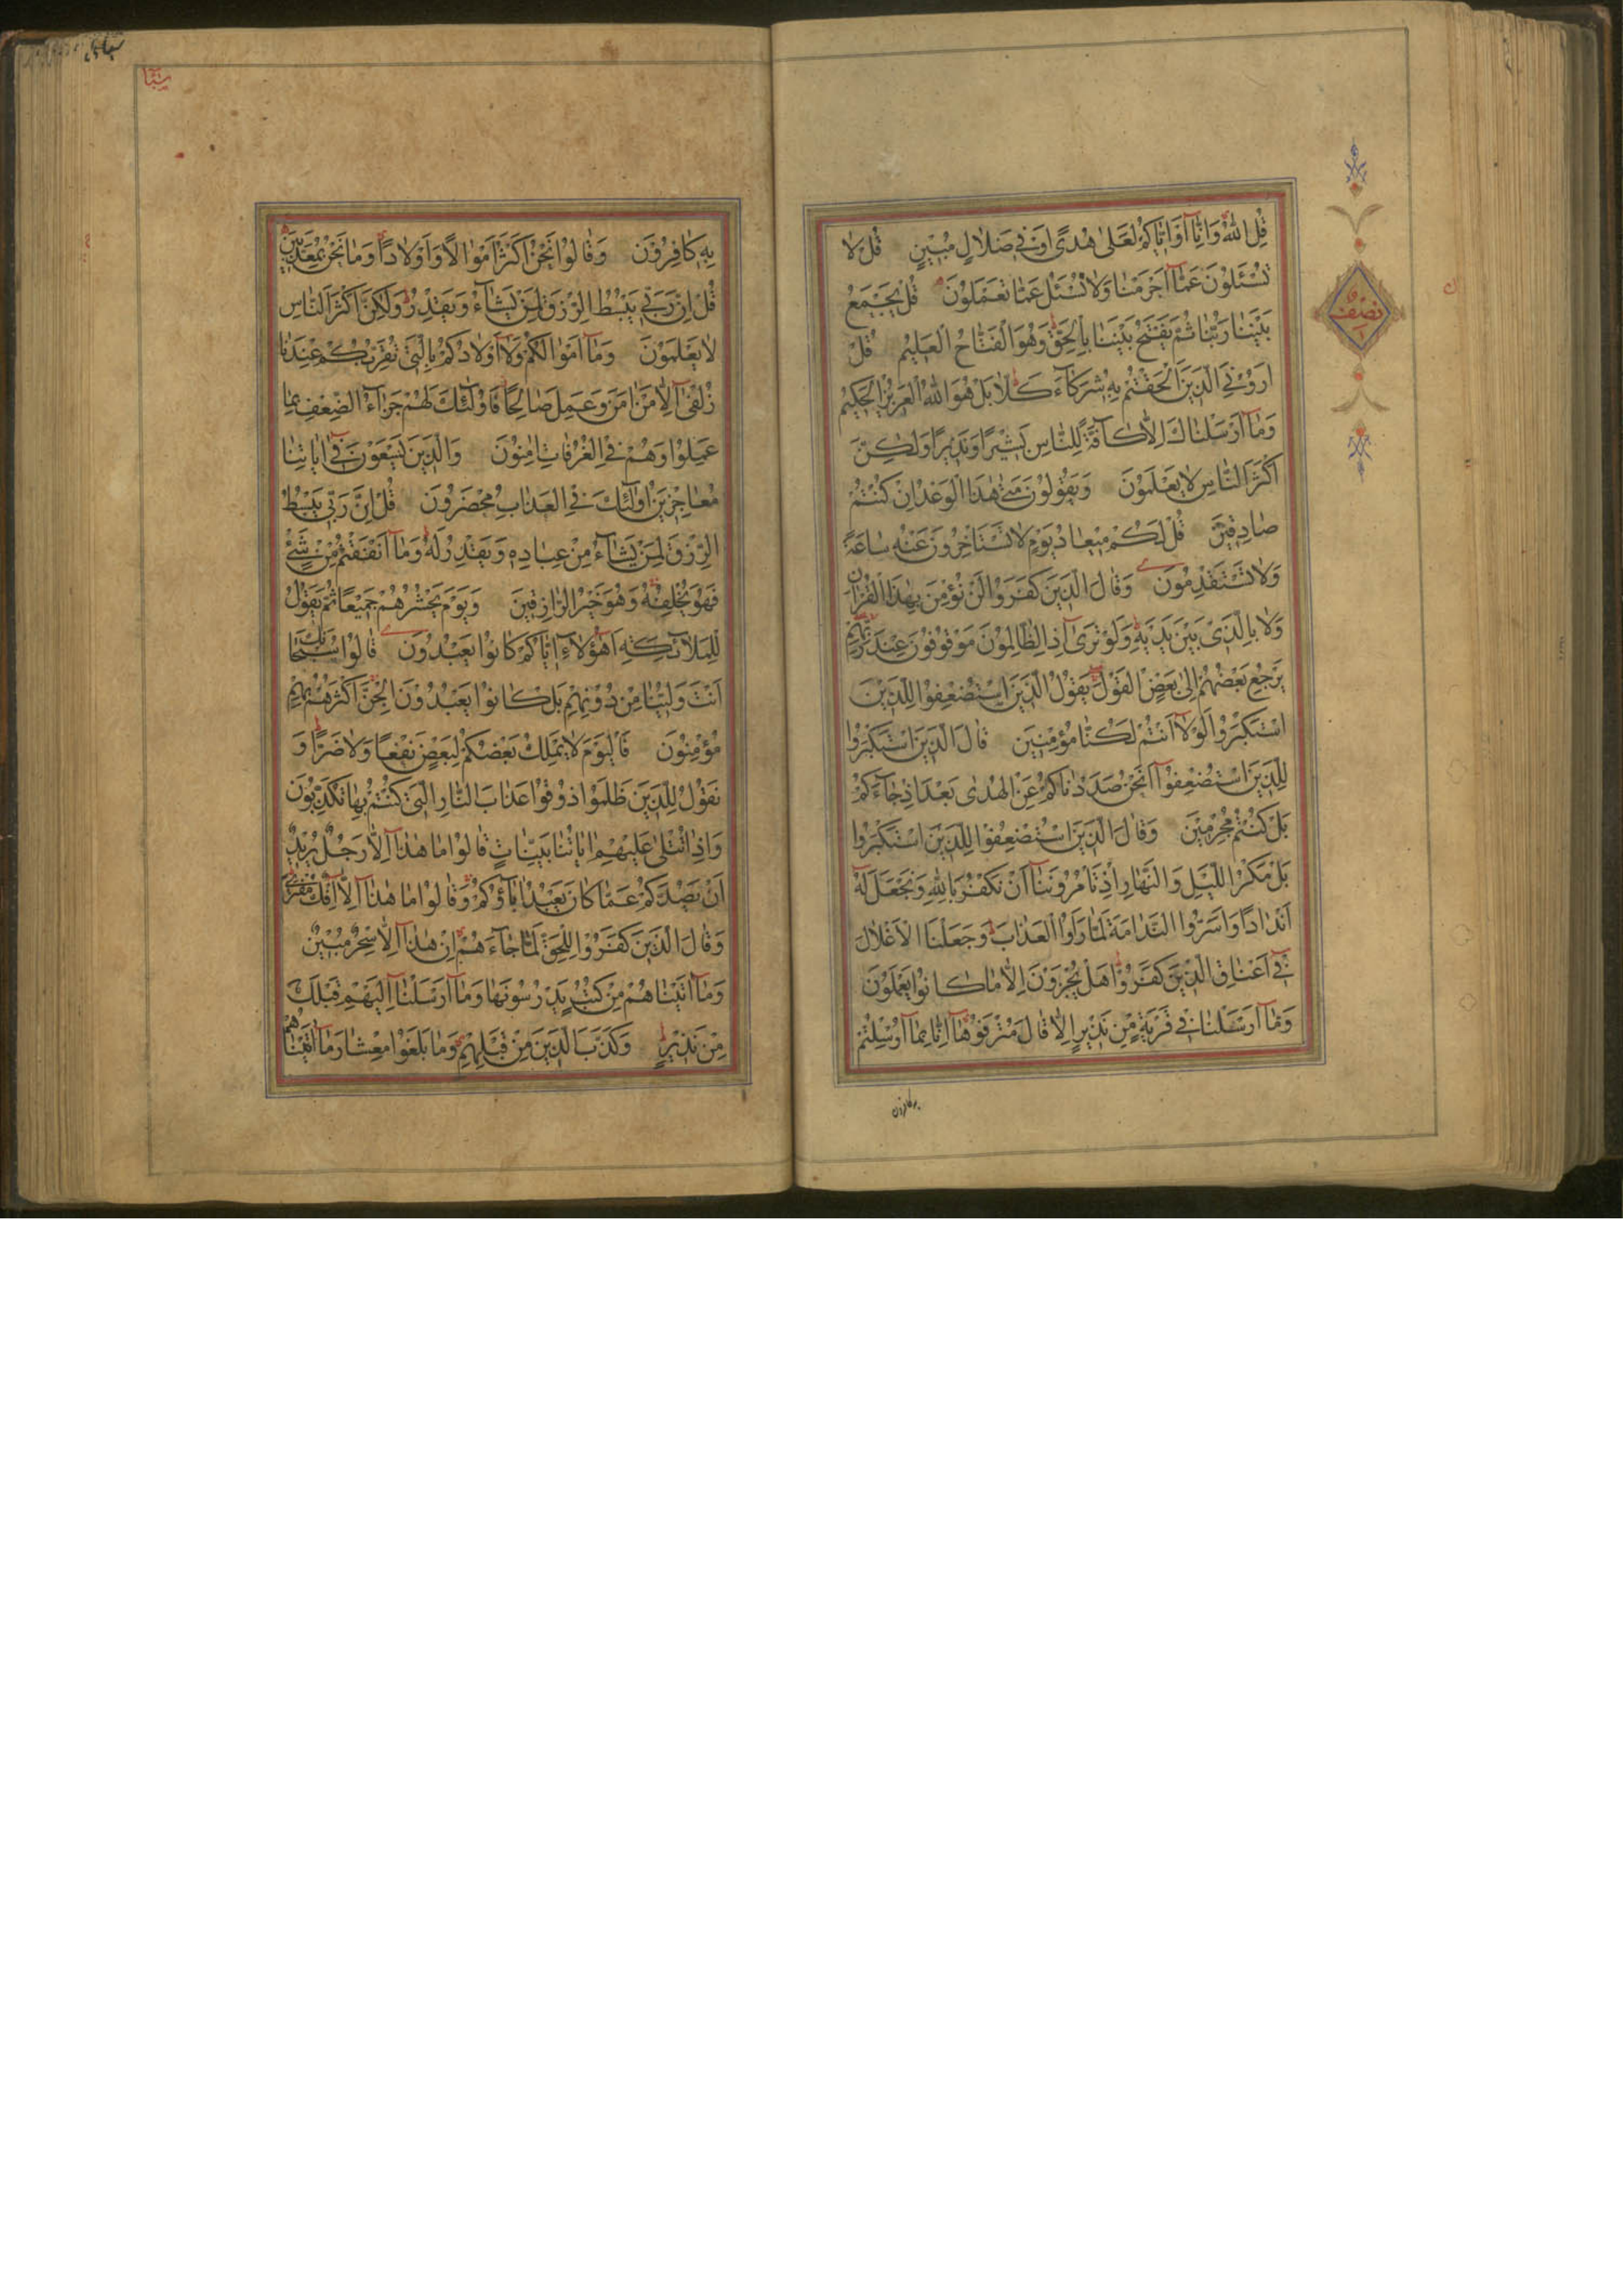 قُلِ اللّٰهُ وَاِنَّا اَوْ اِيَّاكُمْ لَعَلٰى هُدًى اَوْ فِي ضَلَالٍ مُبِينٍ قُلْ لَا
تُسْئَلُونَ عَمَّا اَجْرَمْنَا وَلَا نُسْئَلُ عَمَّا تَعْمَلُونَ قُلْ يَجْمَعُ
بَيْنَنَا رَبُّنَا ثُمَّ يَفْتَحُ بَيْنَنَا بِالْحَقِّ وَهُوَ الْفَتَّاحُ الْعَلِيمُ قُلْ
اَرُونِيَ الَّذِينَ اَلْحَقْتُمْ بِهِ شُرَكَاءَ كَلَّا بَلْ هُوَ اللّٰهُ الْعَزِيزُ الْحَكِيمُ
وَمَا اَرْسَلْنَاكَ اِلَّا كَافَّةً لِلنَّاسِ بَشِيرًا وَنَذِيرًا وَلٰكِنَّ
اَكْثَرَ النَّاسِ لَا يَعْلَمُونَ وَيَقُولُونَ مَتٰى هٰذَا الْوَعْدُ اِنْ كُنْتُمْ
صَادِقِينَ قُلْ لَكُمْ مِيعَادُ يَوْمٍ لَا تَسْتَاْخِرُونَ عَنْهُ سَاعَةً
وَلَا تَسْتَقْدِمُونَ وَقَالَ الَّذِينَ كَفَرُوا لَنْ نُؤْمِنَ بِهٰذَا الْقُرْاٰنِ
وَلَا بِالَّذِي بَيْنَ يَدَيْهِ وَلَوْ تَرٰى اِذِ الظَّالِمُونَ مَوْقُوفُونَ عِنْدَ رَبِّهِمْ
يَرْجِعُ بَعْضُهُمْ اِلٰى بَعْضٍ الْقَوْلَ يَقُولُ الَّذِينَ اسْتُضْعِفُوا لِلَّذِينَ
اسْتَكْبَرُوا لَوْلَا اَنْتُمْ لَكُنَّا مُؤْمِنِينَ قَالَ الَّذِينَ اسْتَكْبَرُوا
لِلَّذِينَ اسْتُضْعِفُوا اَنَحْنُ صَدَدْنَاكُمْ عَنِ الْهُدٰى بَعْدَ اِذْ جَاءَكُمْ
بَلْ كُنْتُمْ مُجْرِمِينَ وَقَالَ الَّذِينَ اسْتُضْعِفُوا لِلَّذِينَ اسْتَكْبَرُوا
بَلْ مَكْرُ اللَّيْلِ وَالنَّهَارِ اِذْ تَاْمُرُونَنَا اَنْ نَكْفُرَ بِاللّٰهِ وَنَجْعَلَ لَهُ
اَنْدَادًا وَاَسَرُّوا النَّدَامَةَ لَمَّا رَاَوُا الْعَذَابَ وَجَعَلْنَا الْاَغْلَالَ
فِي اَعْنَاقِ الَّذِينَ كَفَرُوا هَلْ يُجْزَوْنَ اِلَّا مَا كَانُوا يَعْمَلُونَ
وَمَا اَرْسَلْنَا فِي قَرْيَةٍ مِنْ نَذِيرٍ اِلَّا قَالَ مُتْرَفُوهَا اِنَّا بِمَا اُرْسِلْتُمْ
به كافرون
نصف
سبا
بِهِ كَافِرُونَ وَقَالُوا نَحْنُ اَكْثَرُ اَمْوَالًا وَاَوْلَادًا وَمَا نَحْنُ بِمُعَذَّبِينَ
قُلْ اِنَّ رَبِّي يَبْسُطُ الرِّزْقَ لِمَنْ يَشَاءُ وَيَقْدِرُ وَلٰكِنَّ اَكْثَرَ النَّاسِ
لَا يَعْلَمُونَ وَمَا اَمْوَالُكُمْ وَلَا اَوْلَادُكُمْ بِالَّتِي تُقَرِّبُكُمْ عِنْدَنَا
زُلْفٰى اِلَّا مَنْ اٰمَنَ وَعَمِلَ صَالِحًا فَاُولٰئِكَ لَهُمْ جَزَاءُ الضِّعْفِ بِمَا
عَمِلُوا وَهُمْ فِي الْغُرُفَاتِ اٰمِنُونَ وَالَّذِينَ يَسْعَوْنَ فِي اٰيَاتِنَا
مُعَاجِزِينَ اُولٰئِكَ فِي الْعَذَابِ مُحْضَرُونَ قُلْ اِنَّ رَبِّي يَبْسُطُ
الرِّزْقَ لِمَنْ يَشَاءُ مِنْ عِبَادِهِ وَيَقْدِرُ لَهُ وَمَا اَنْفَقْتُمْ مِنْ شَيْءٍ
فَهُوَ يُخْلِفُهُ وَهُوَ خَيْرُ الرَّازِقِينَ وَيَوْمَ يَحْشُرُهُمْ جَمِيعًا ثُمَّ يَقُولُ
لِلْمَلَائِكَةِ اَهٰؤُلَاءِ اِيَّاكُمْ كَانُوا يَعْبُدُونَ قَالُوا سُبْحَانَكَ
اَنْتَ وَلِيُّنَا مِنْ دُونِهِمْ بَلْ كَانُوا يَعْبُدُونَ الْجِنَّ اَكْثَرُهُمْ بِهِمْ
مُؤْمِنُونَ فَالْيَوْمَ لَا يَمْلِكُ بَعْضُكُمْ لِبَعْضٍ نَفْعًا وَلَا ضَرًّا وَ
نَقُولُ لِلَّذِينَ ظَلَمُوا ذُوقُوا عَذَابَ النَّارِ الَّتِي كُنْتُمْ بِهَا تُكَذِّبُونَ
وَاِذَا تُتْلٰى عَلَيْهِمْ اٰيَاتُنَا بَيِّنَاتٍ قَالُوا مَا هٰذَا اِلَّا رَجُلٌ يُرِيدُ
اَنْ يَصُدَّكُمْ عَمَّا كَانَ يَعْبُدُ اٰبَاؤُكُمْ وَقَالُوا مَا هٰذَا اِلَّا اِفْكٌ مُفْتَرًى
وَقَالَ الَّذِينَ كَفَرُوا لِلْحَقِّ لَمَّا جَاءَهُمْ اِنْ هٰذَا اِلَّا سِحْرٌ مُبِينٌ
وَمَا اٰتَيْنَاهُمْ مِنْ كُتُبٍ يَدْرُسُونَهَا وَمَا اَرْسَلْنَا اِلَيْهِمْ قَبْلَكَ
مِنْ نَذِيرٍ وَكَذَّبَ الَّذِينَ مِنْ قَبْلِهِمْ وَمَا بَلَغُوا مِعْشَارَ مَا اٰتَيْنَاهُمْ